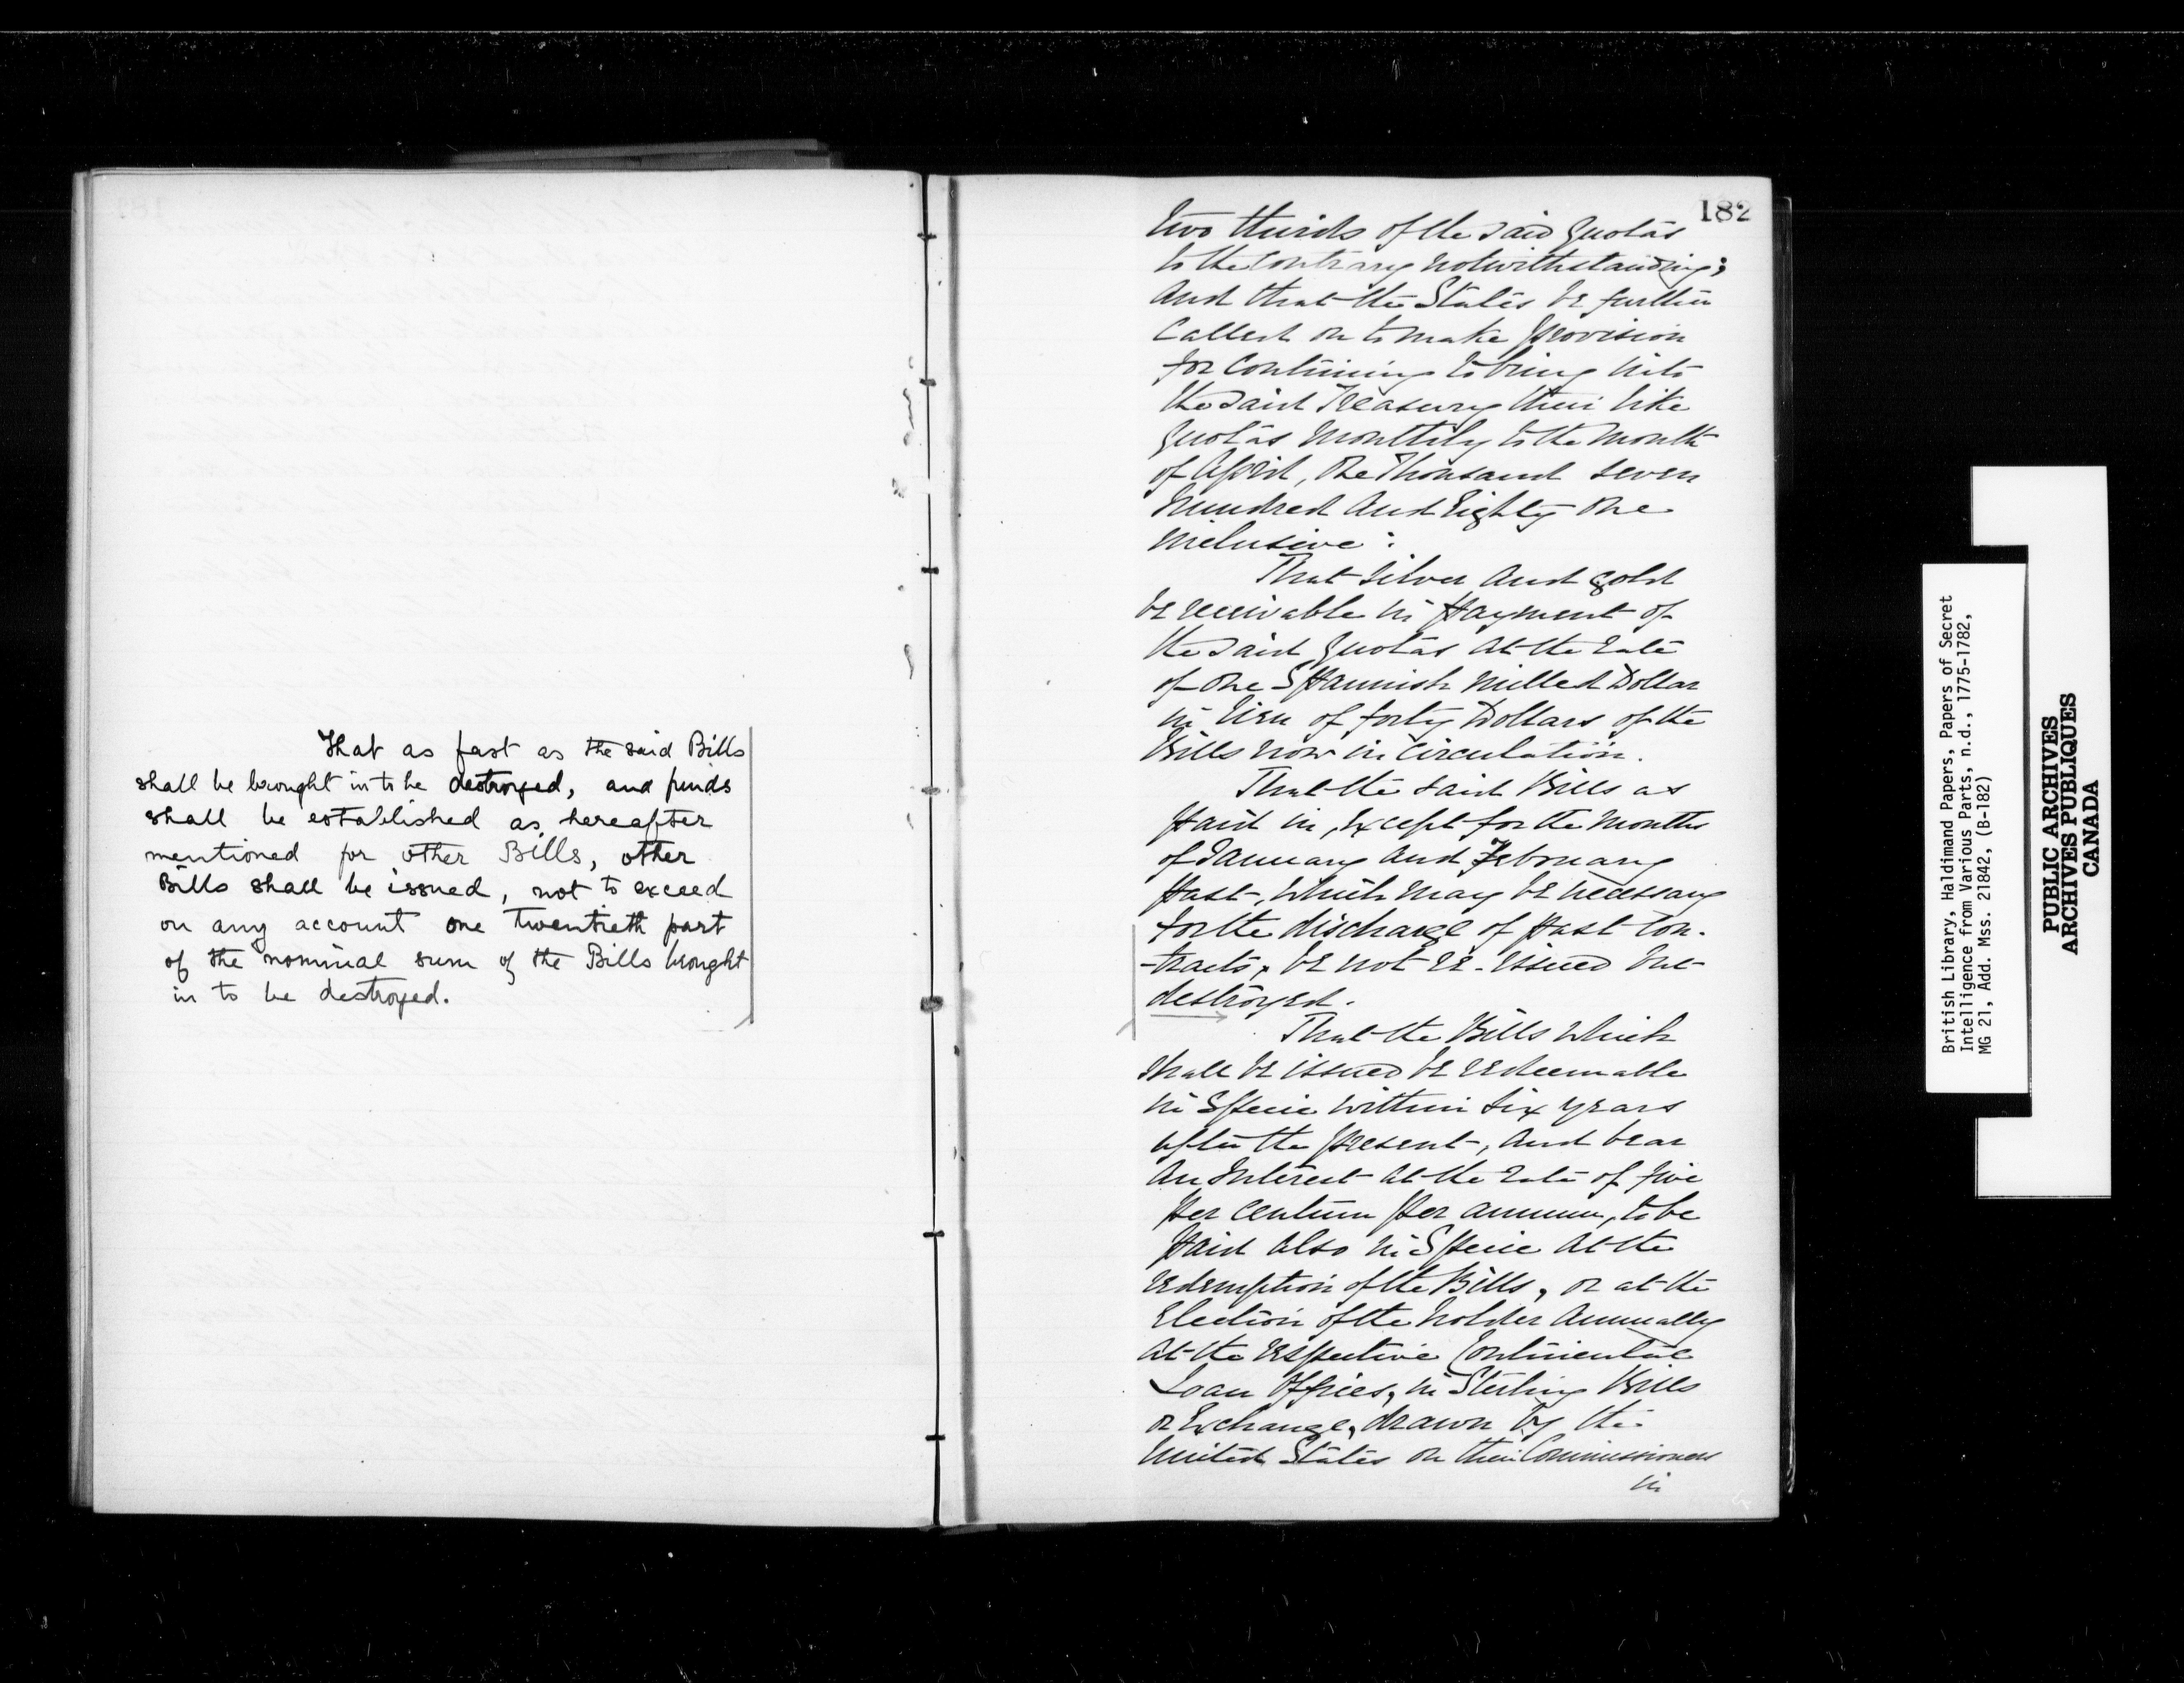 That as fast as the said Bills
shall be brought in to be destroyed, and funds
shall be established as hereafter
mentioned for other Bills, other
Bills shall be issued, not to exceed
on any account one twentieth part
of the nominal sum of the Bills brought
in to be destroyed.
182
two thirds of the said Quotas
to the Contrary notwithstanding;
And that the States be further
Called on to make provision
for Continuing to bring into
the said Treasury their like
Quotas monthly to the month
of April, One Thousand seven
hundred and Eighty One
inclusive:
That silver and gold
be receivable in payment of
the said Quotas at the rate
of One Spannish Milled Dollar
in lieu of forty Dollars of the
Bills now in Circulation.
That the said Bills as
paid in, Except for the months
of January and February
past, which may be necessary
for the discharge of past Con-
-tracts, be not re-issued but
destroyed.
That the Bills which
shall be issued be redeemable
in Specie within six years
after the present, and bear
An Interest at the rate of five
per Centum per annum, to be
paid also in Specie at the
redemption of the Bills, or at the
Election of the holder Annually
at the respective Continental
Loan Offices, in Sterling Bills
or Exchange, drawn by the
United States on their Commissioners
in
British Library, Haldimand Papers, Papers of Secret
Intelligence from Various Parts, n.d., 1775-1782,
MG 21, Add. Mss. 21842, (B-182)
PUBLIC ARCHIVES
ARCHIVES PUBLIQUES
CANADA